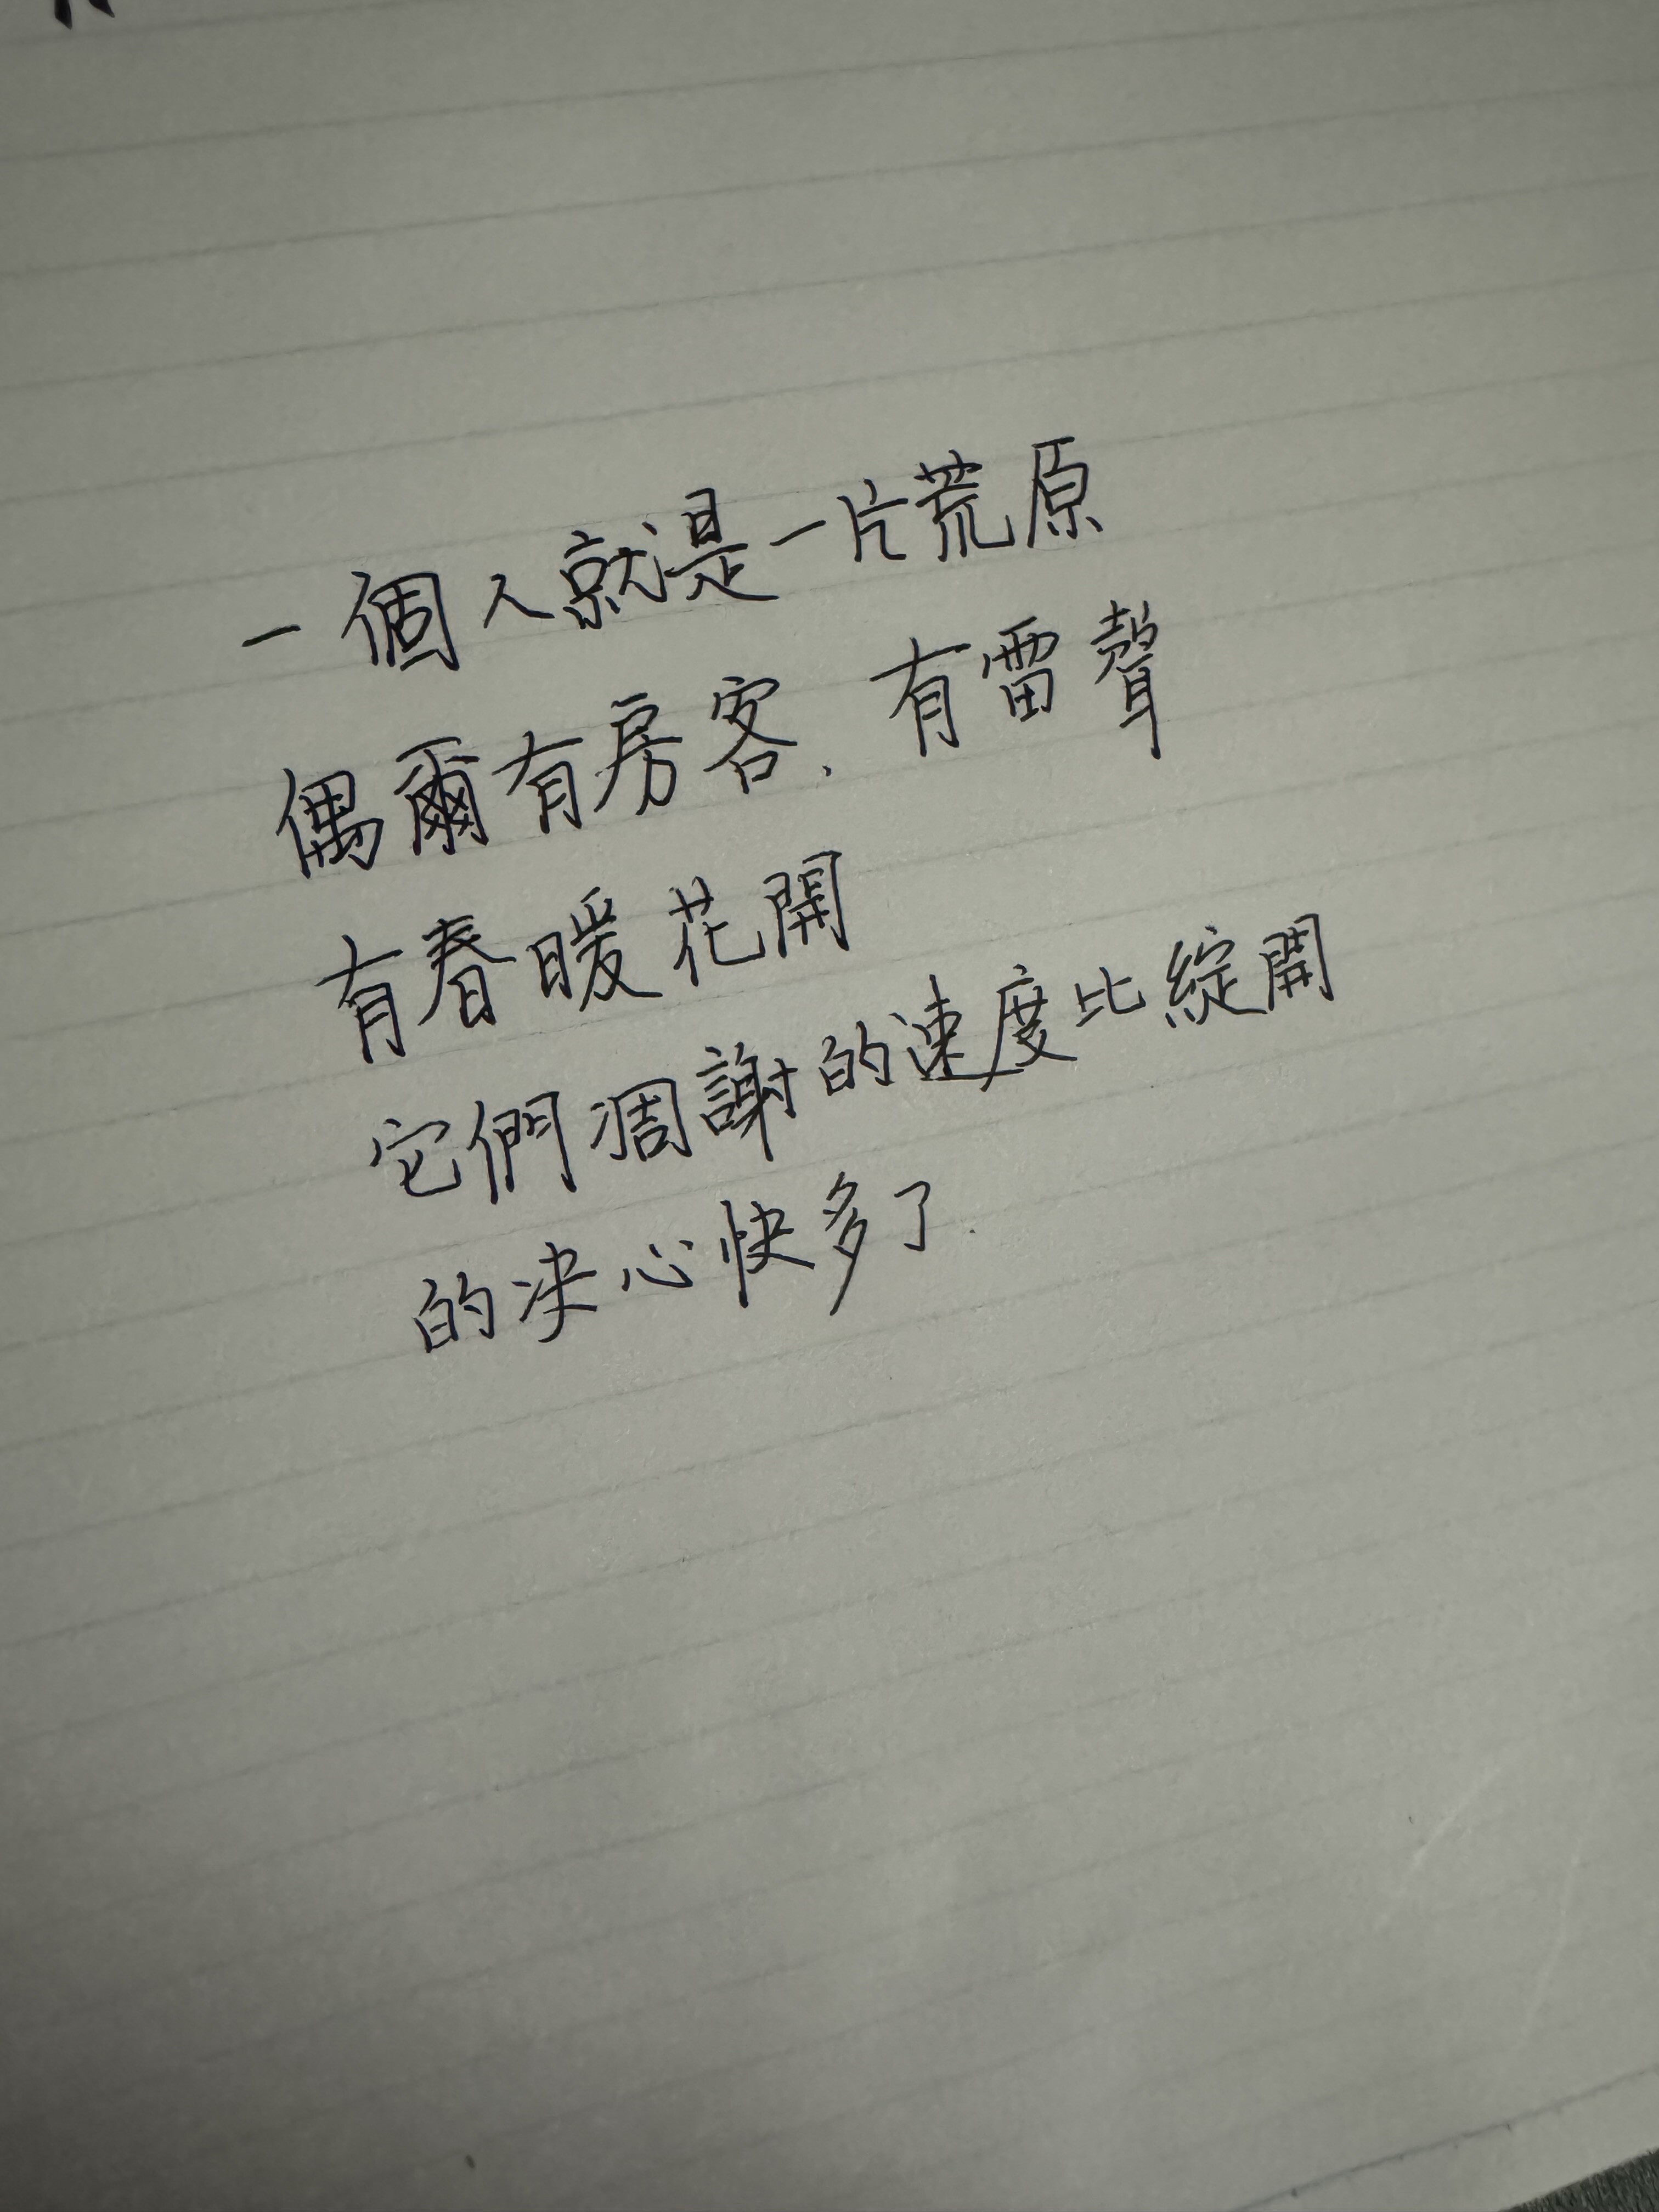 一個人就是一片荒原
偶爾有房客、有雷聲
有春暖花開
它們凋謝的速度比綻開
的决心快多了.